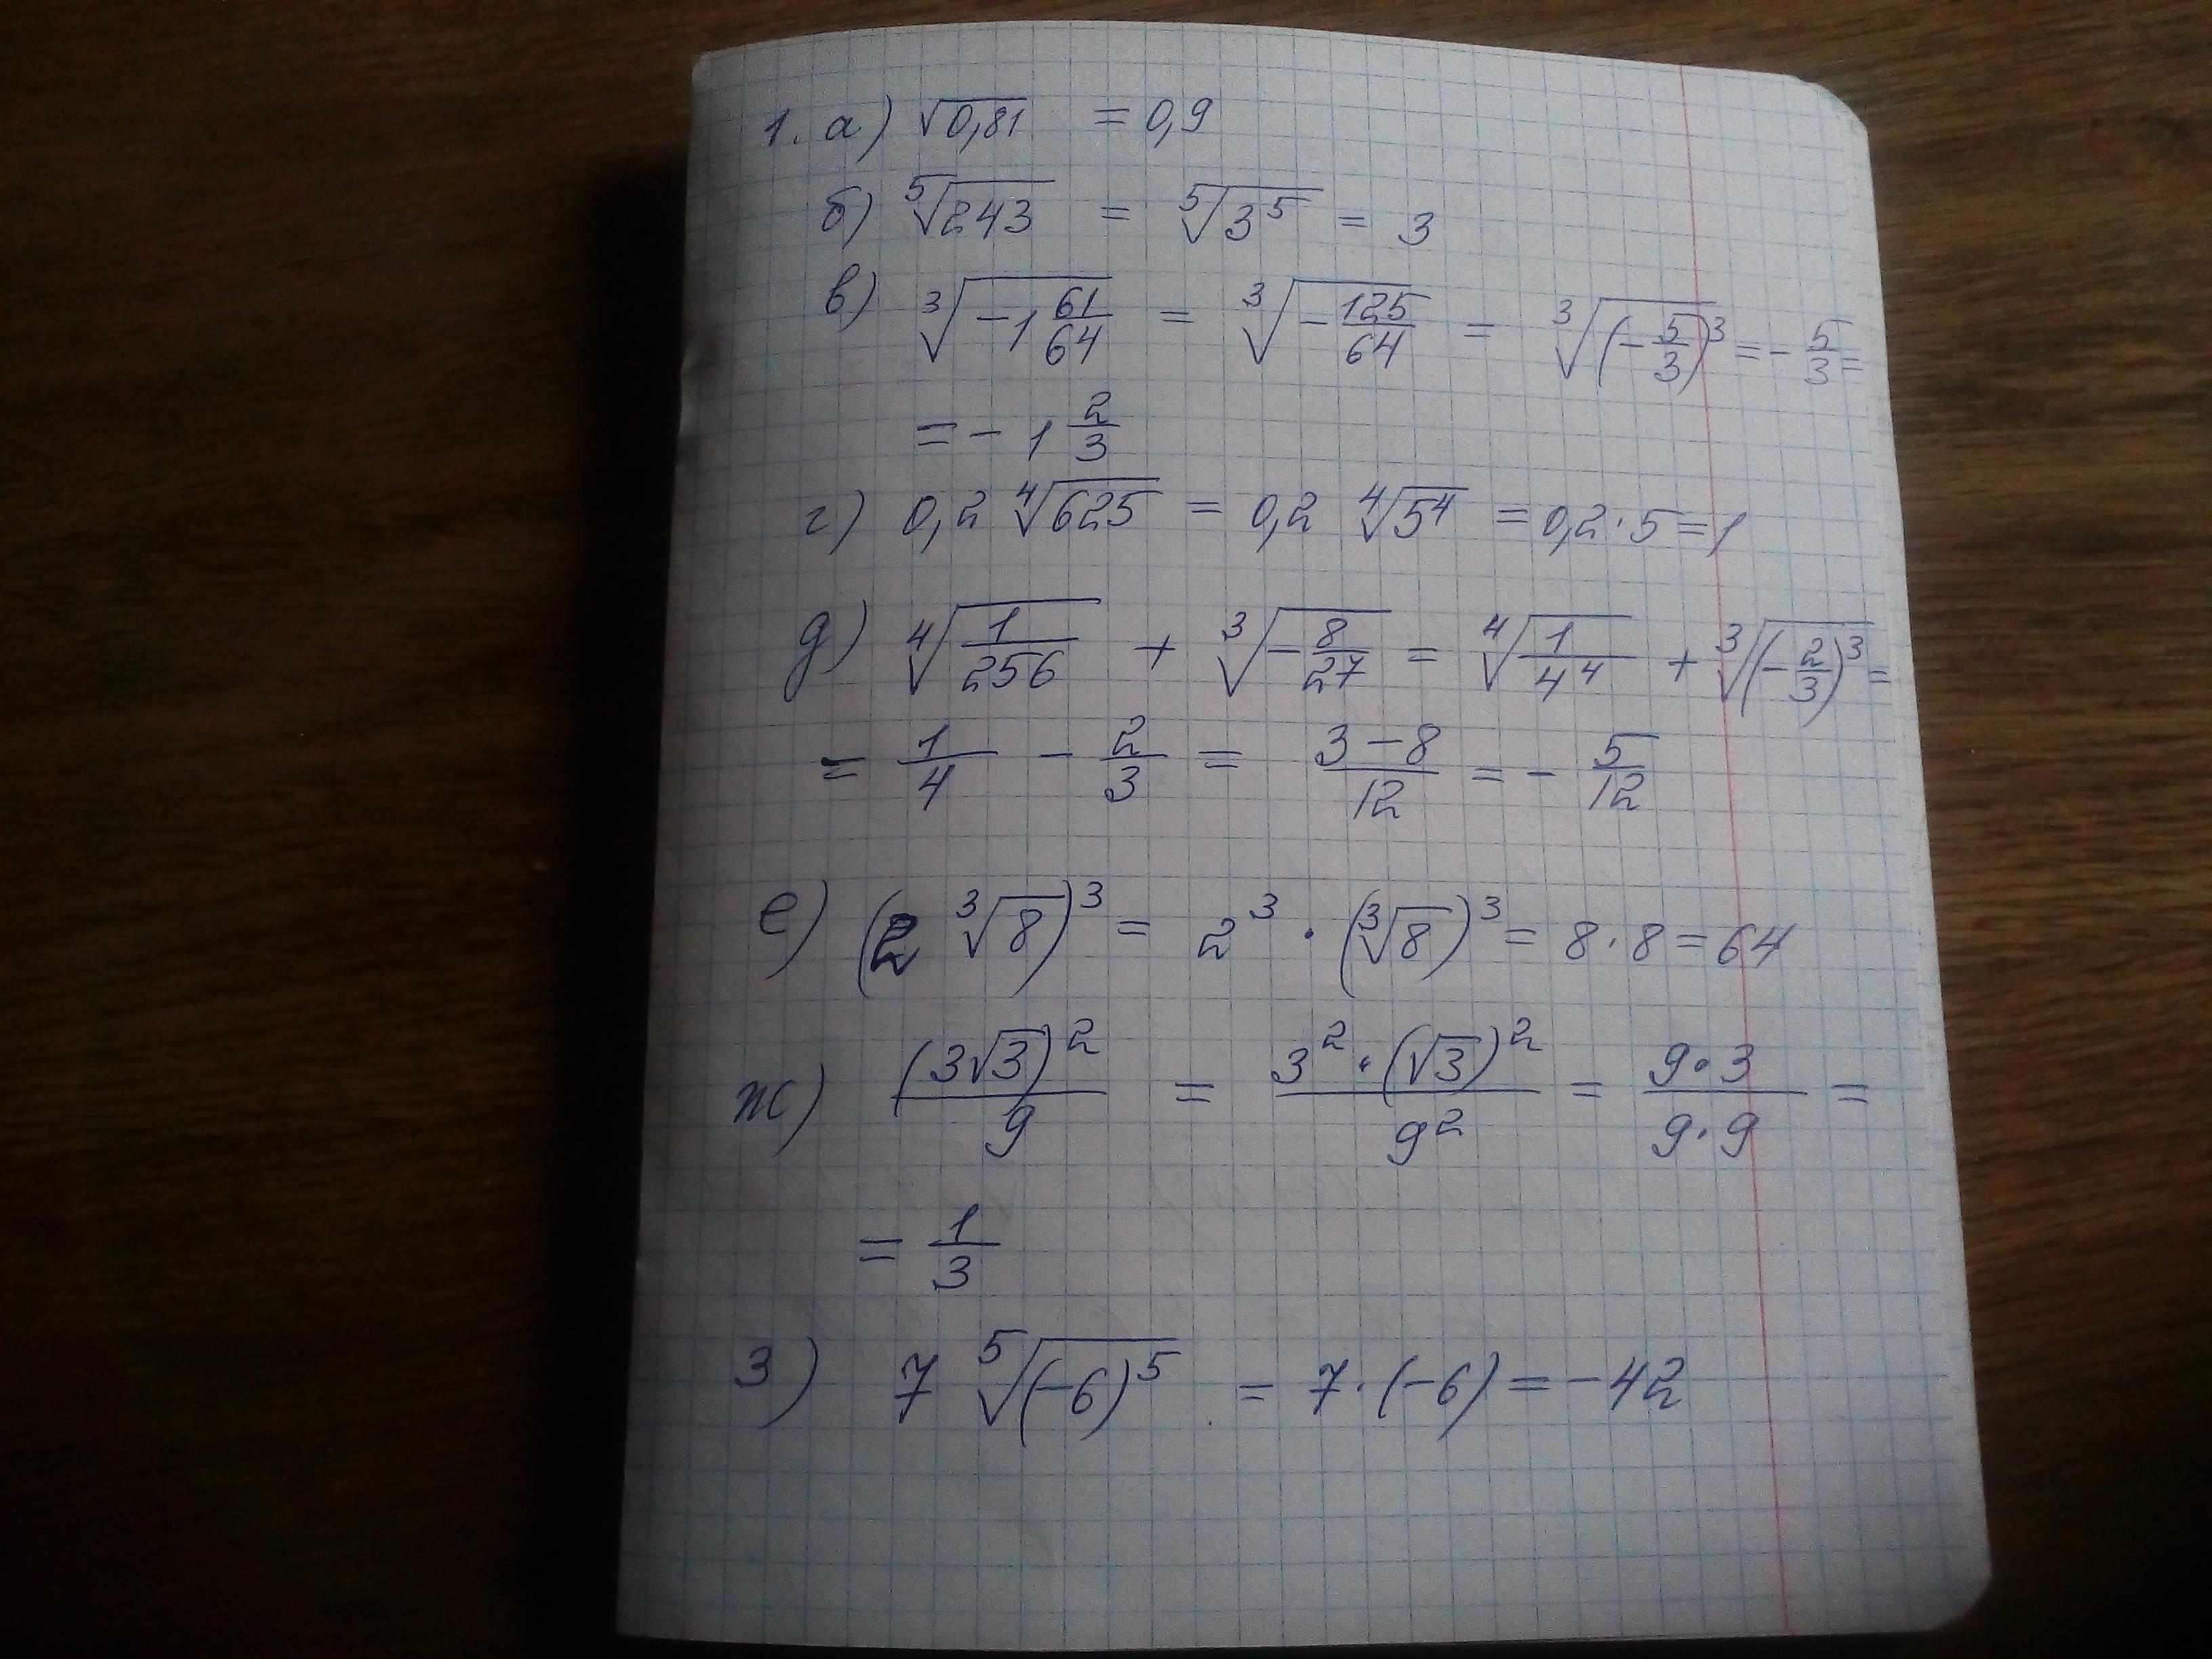 1. а) √0,81 = 0,9
б) ⁵√243 = ⁵√3⁵ = 3
в) ³√(-1 61/64) = ³√(-125/64) = ³√((-5/3)³) = -5/3 =
= -1 2/3
г) 0,2 ⁴√625 = 0,2 ⁴√5⁴ = 0,2·5=1
д) ⁴√(1/256) + ³√(-8/27) = ⁴√(1/4⁴) + ³√((-2/3)³) =
= 1/4 - 2/3 = (3-8)/12 = -5/12
е) (2 ³√8)³ = 2³ · (³√8)³ = 8·8=64
ж) (3√3)²/9 = 3²·(√3)²/9² = 9·3/9·9 =
= 1/3
з) 7 ⁵√(-6)⁵ = 7·(-6)=-42